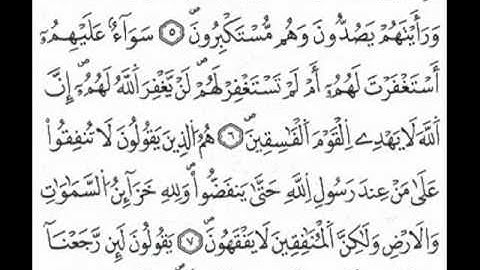 وَرَأَيْتَهُمْ يَصُدُّونَ وَهُم مُّسْتَكْبِرُونَ ۝٥ سَوَآءٌ عَلَيْهِمُۥٓ
أَسْتَغْفَرْتَ لَهُمُۥٓ أَمْ لَمْ تَسْتَغْفِرْ لَهُمْ لَنْ يَّغْفِرَ اَللَّهُ لَهُمُۥٓ إِنَّ
اَللَّهَ لَا يَهْدِے اِلْقَوْمَ اَلْفَٰسِقِينَ ۝٦ هُمُ اُلذِينَ يَقُولُونَ لَا تُنفِقُواْ
عَلَىٰ مَنْ عِندَ رَسُولِ اِللَّهِ حَتَّىٰ يَنفَضُّواْ وَلِلهِ خَزَآئِنُ اُلسَّمَٰوَٰتِ
وَالَارْضِ وَلَٰكِنَّ اَلْمُنَٰفِقِينَ لَا يَفْقَهُونَ ۝٧ يَقُولُونَ لَئِن رَّجَعْنَآ